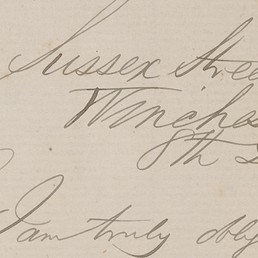 Sussex Stree
Winches
8th D
I am truly oblig